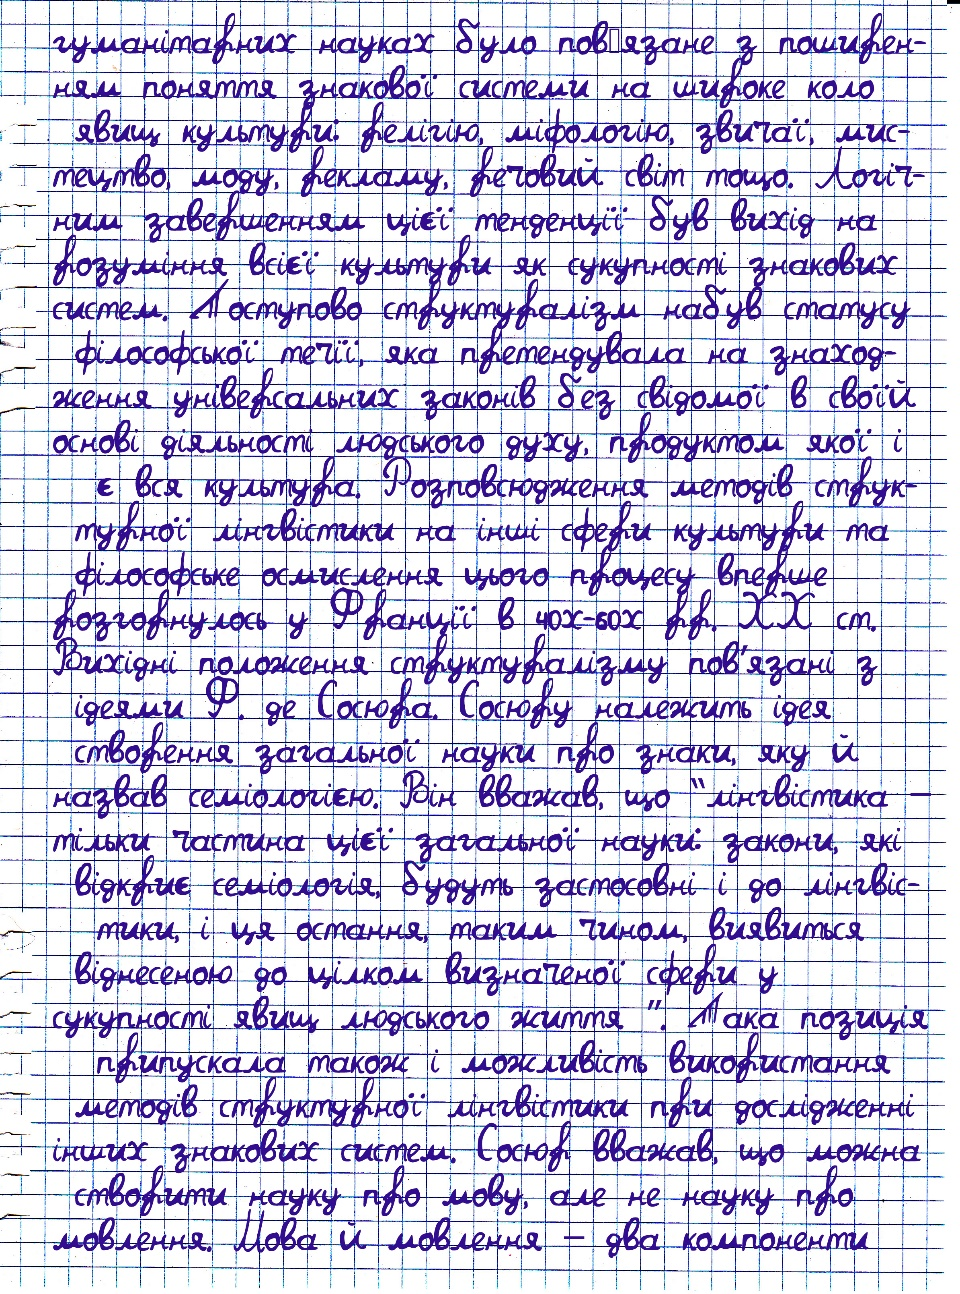 гуманітарних науках було пов▯язане з поширен-
ням поняття знакової системи на широке коло
явищ культури: релігію, міфологію, звичаї, мис-
тецтво, моду, рекламу, речовий світ тощо. Логіч-
ним завершенням цієї тенденції був вихід на
розуміння всієї культури як сукупності знакових
систем. Поступово структуралізм набув статусу
філософської течії, яка претендувала на знаход-
ження універсальних законів без свідомої в своїй
основі діяльності людського духу, продуктом якої і
є вся культура. Розповсюдження методів струк-
турної лінгвістики на інші сфери культури та
філософське осмислення цього процесу вперше
розгорнулось у Франції в 40х-60х рр. ХХ ст.
Вихідні положення структуралізму пов'язані з
ідеями Ф. де Сосюра. Сосюру належить ідея
створення загальної науки про знаки, яку й
назвав семіологією. Він вважав, що "лінгвістика –
тільки частина цієї загальної науки: закони, які
відкриє семіологія, будуть застосовні і до лінгвіс-
тики, і ця остання, таким чином, виявиться
віднесеною до цілком визначеної сфери у
сукупності явищ людського життя ". Така позиція
припускала також і можливість використання
методів структурної лінгвістики при дослідженні
інших знакових систем. Сосюр вважав, що можна
створити науку про мову, але не науку про
мовлення. Мова й мовлення – два компоненти